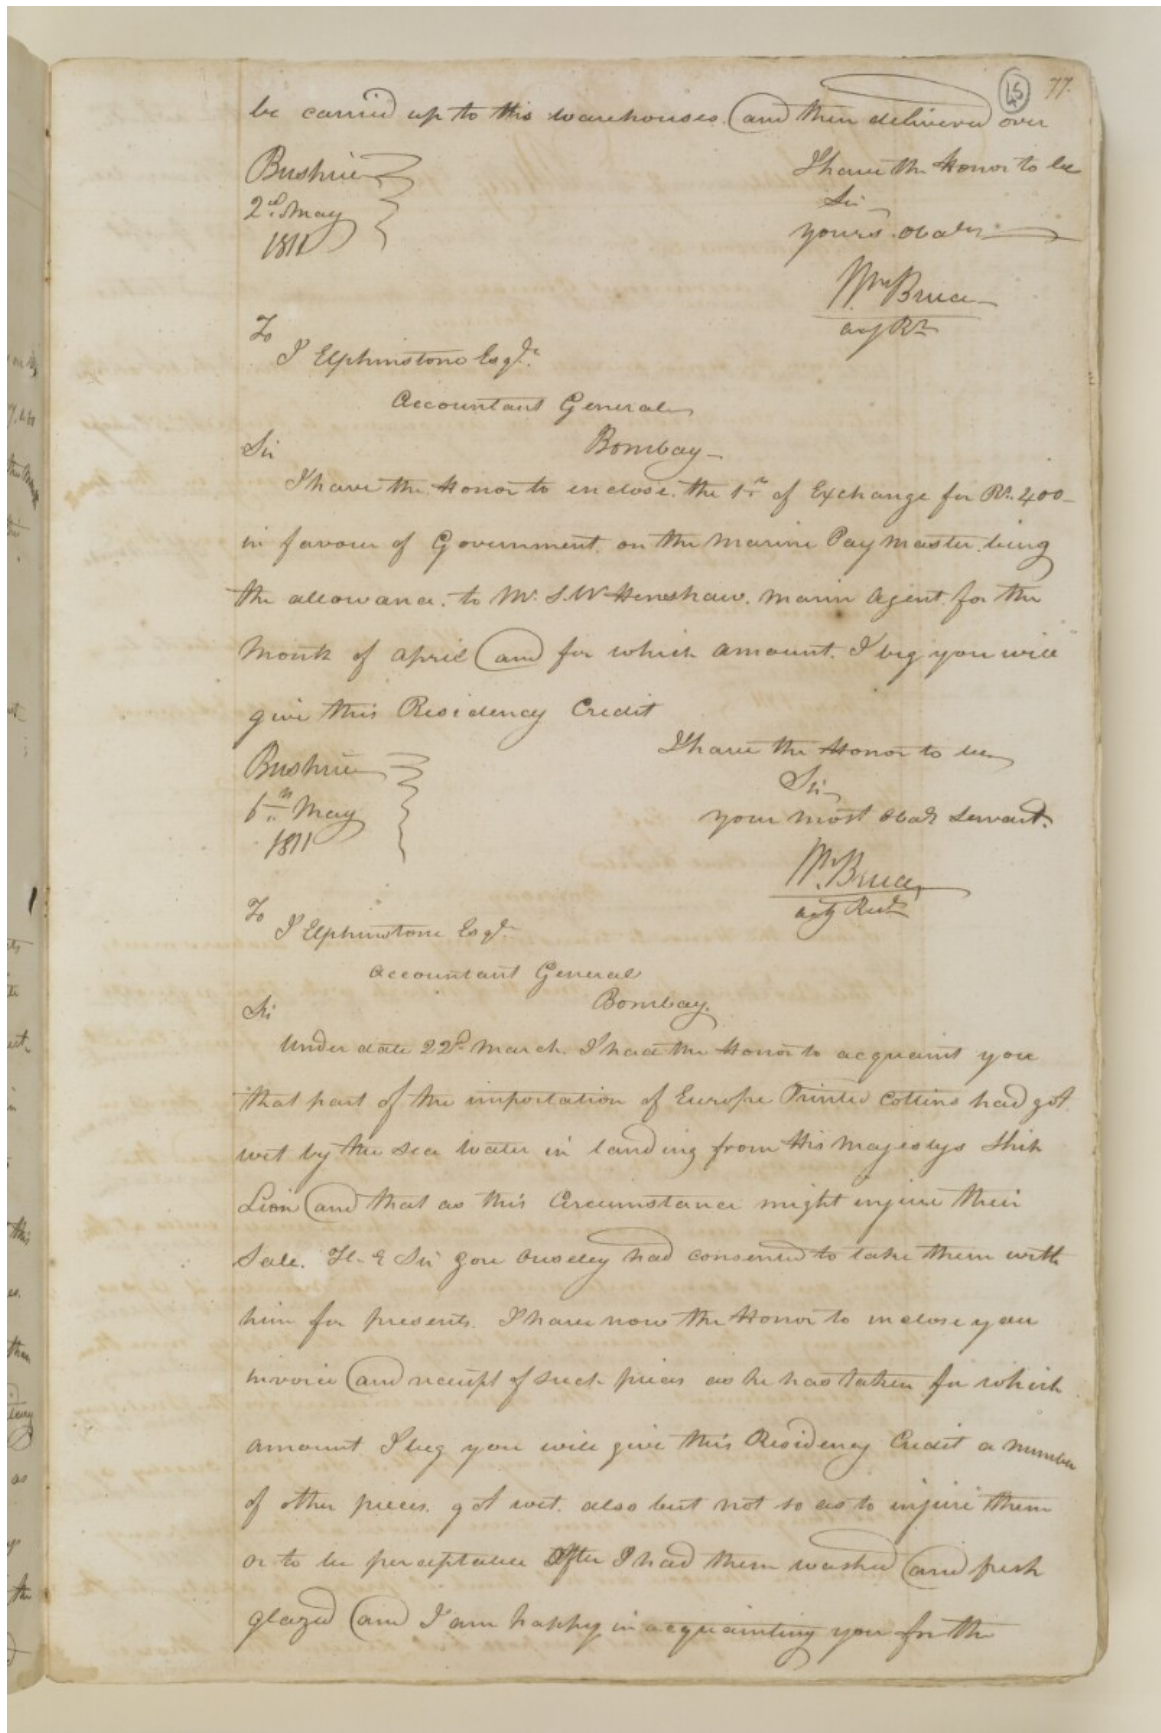 45 77.
be carried up to this warehouses and then delivered over
I have the Honor to be
Sir
yours Obedt.
Wm Bruce
actg Rt
Bushire
2d. May
1811
To
J Elphinstone Esqr.
Accountant General
Bombay
Sir
I have the Honor to enclose the 1st of Exchange for Rs. 400
in favour of Government on the Marine Pay Master being
the allowance to Mr. S. W Henshaw. Marin Agent for the
Month of April and for which amount. I beg you will
give this Residency Credit
I have the Honor to be
Sir
your most Obedt Servant.
Wm. Bruce
actg Resdt
Bushire
6th May
1811
To
J Elphinstone Esqr.
Accountant General
Bombay.
Sir
Under date 22d. March. I had the Honor to acquaint you
that part of the importation of Europe Printed Cottins had got
wet by the sea water in landing from His Majestys Ship
Lion and that as this Circumstance might injure their
Sale. H. E Sir Gore Ouseley had consented to take them with
him for presents. I have now the Honor to inclose you
invoice and receipt of such pieces as he has taken for which
amount. I beg you will give this Residency Credit a number
of other pieces. got wet. also but not so as to injure them
or to be perceptable After I had them washed and fresh
glazed and I am happy in acquainting you for the